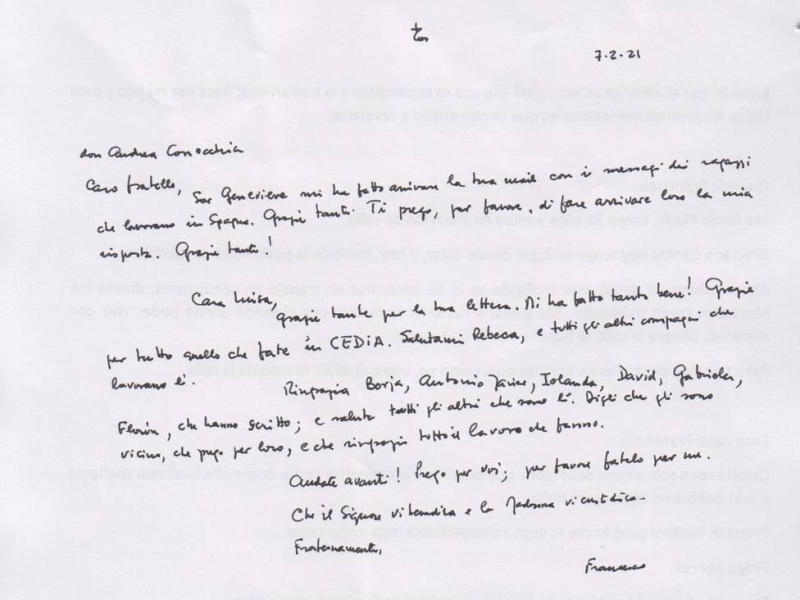 7-2-21
don Andrea Conocchia
Caro fratello,
Sor Genevieve mi ha fatto arrivare la tua mail con i messagi dei ragazzi
che lavorano in Spagna. Grazie tanti. Ti prego, per favore, di fare arrivare loro la mia
risposta. Grazie tanti!
Cara Luisa,
grazie tante per la tua lettera. Mi ha fatto tanto bene! Grazie
per tutto quello che fate in CEDIA. Salutami Rebeca, e tutti gli altri compagni che
lavorano lì.
Ringrazia Borja, Antonio Javier, Iolanda, David, Gabriela,
che hanno scritto; e saluta tutti gli altri che sono lì. Digli che gli sono
vicino, che prego per loro, e che ringrazio tutto il lavoro che fanno.
Andate avanti! Prego per voi; per favore fatelo per me.
Che il Signore vi benedica e la Madonna vi custodisca.
Fraternamente,
Francesco